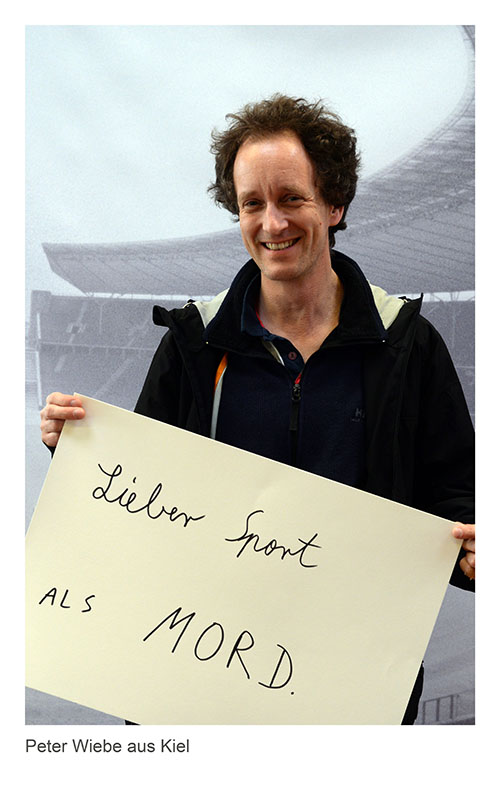 Lieber Sport
ALS MORD.
Peter Wiebe aus Kiel